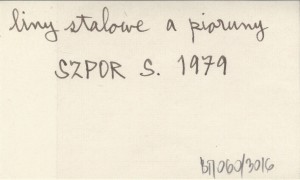 liny stalowe a pioruny
SZPOR S. 1979
BT/060/3016